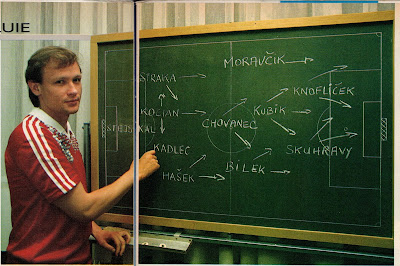 UIE
STRAKA
MORAVČIK
KNOFLÍČEK
KOCIAN
CHOVANEC
KUBÍK
KADLEC
SKUHRAVÝ
HAŠEK
BÍLEK